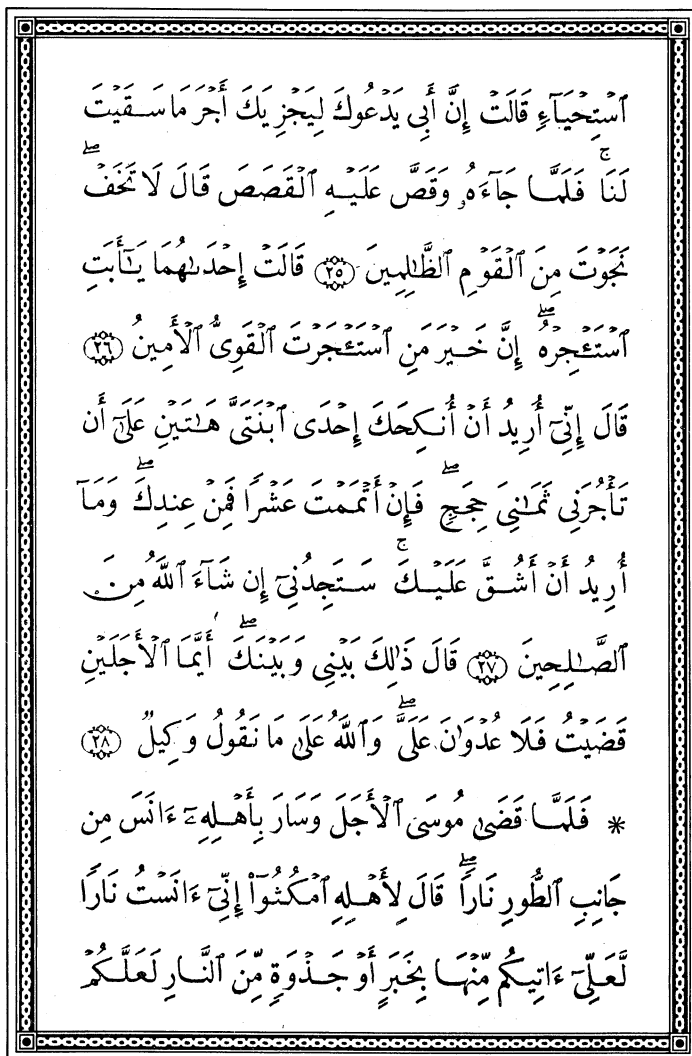 ٱسۡتِحۡيَآءٖ قَالَتۡ إِنَّ أَبِي يَدۡعُوكَ لِيَجۡزِيَكَ أَجۡرَ مَا سَقَيۡتَ
لَنَاۚ فَلَمَّا جَآءَهُۥ وَقَصَّ عَلَيۡهِ ٱلۡقَصَصَ قَالَ لَا تَخَفۡۖ
نَجَوۡتَ مِنَ ٱلۡقَوۡمِ ٱلظَّٰلِمِينَ ٢٥ قَالَتۡ إِحۡدَىٰهُمَا يَٰٓأَبَتِ
ٱسۡتَـٔۡجِرۡهُۖ إِنَّ خَيۡرَ مَنِ ٱسۡتَـٔۡجَرۡتَ ٱلۡقَوِيُّ ٱلۡأَمِينُ ٢٦
قَالَ إِنِّيٓ أُرِيدُ أَنۡ أُنكِحَكَ إِحۡدَى ٱبۡنَتَيَّ هَٰتَيۡنِ عَلَىٰٓ أَن
تَأۡجُرَنِي ثَمَٰنِيَ حِجَجٖۖ فَإِنۡ أَتۡمَمۡتَ عَشۡرٗا فَمِنۡ عِندِكَۖ وَمَآ
أُرِيدُ أَنۡ أَشُقَّ عَلَيۡكَۚ سَتَجِدُنِيٓ إِن شَآءَ ٱللَّهُ مِنَ
ٱلصَّٰلِحِينَ ٢٧ قَالَ ذَٰلِكَ بَيۡنِي وَبَيۡنَكَۖ أَيَّمَا ٱلۡأَجَلَيۡنِ
قَضَيۡتُ فَلَا عُدۡوَٰنَ عَلَيَّۖ وَٱللَّهُ عَلَىٰ مَا نَقُولُ وَكِيلٞ ٢٨
* فَلَمَّا قَضَىٰ مُوسَى ٱلۡأَجَلَ وَسَارَ بِأَهۡلِهِۦٓ ءَانَسَ مِن
جَانِبِ ٱلطُّورِ نَارٗاۖ قَالَ لِأَهۡلِهِ ٱمۡكُثُوٓاْ إِنِّيٓ ءَانَسۡتُ نَارٗا
لَّعَلِّيٓ ءَاتِيكُم مِّنۡهَا بِخَبَرٍ أَوۡ جَذۡوَةٖ مِّنَ ٱلنَّارِ لَعَلَّكُمۡ